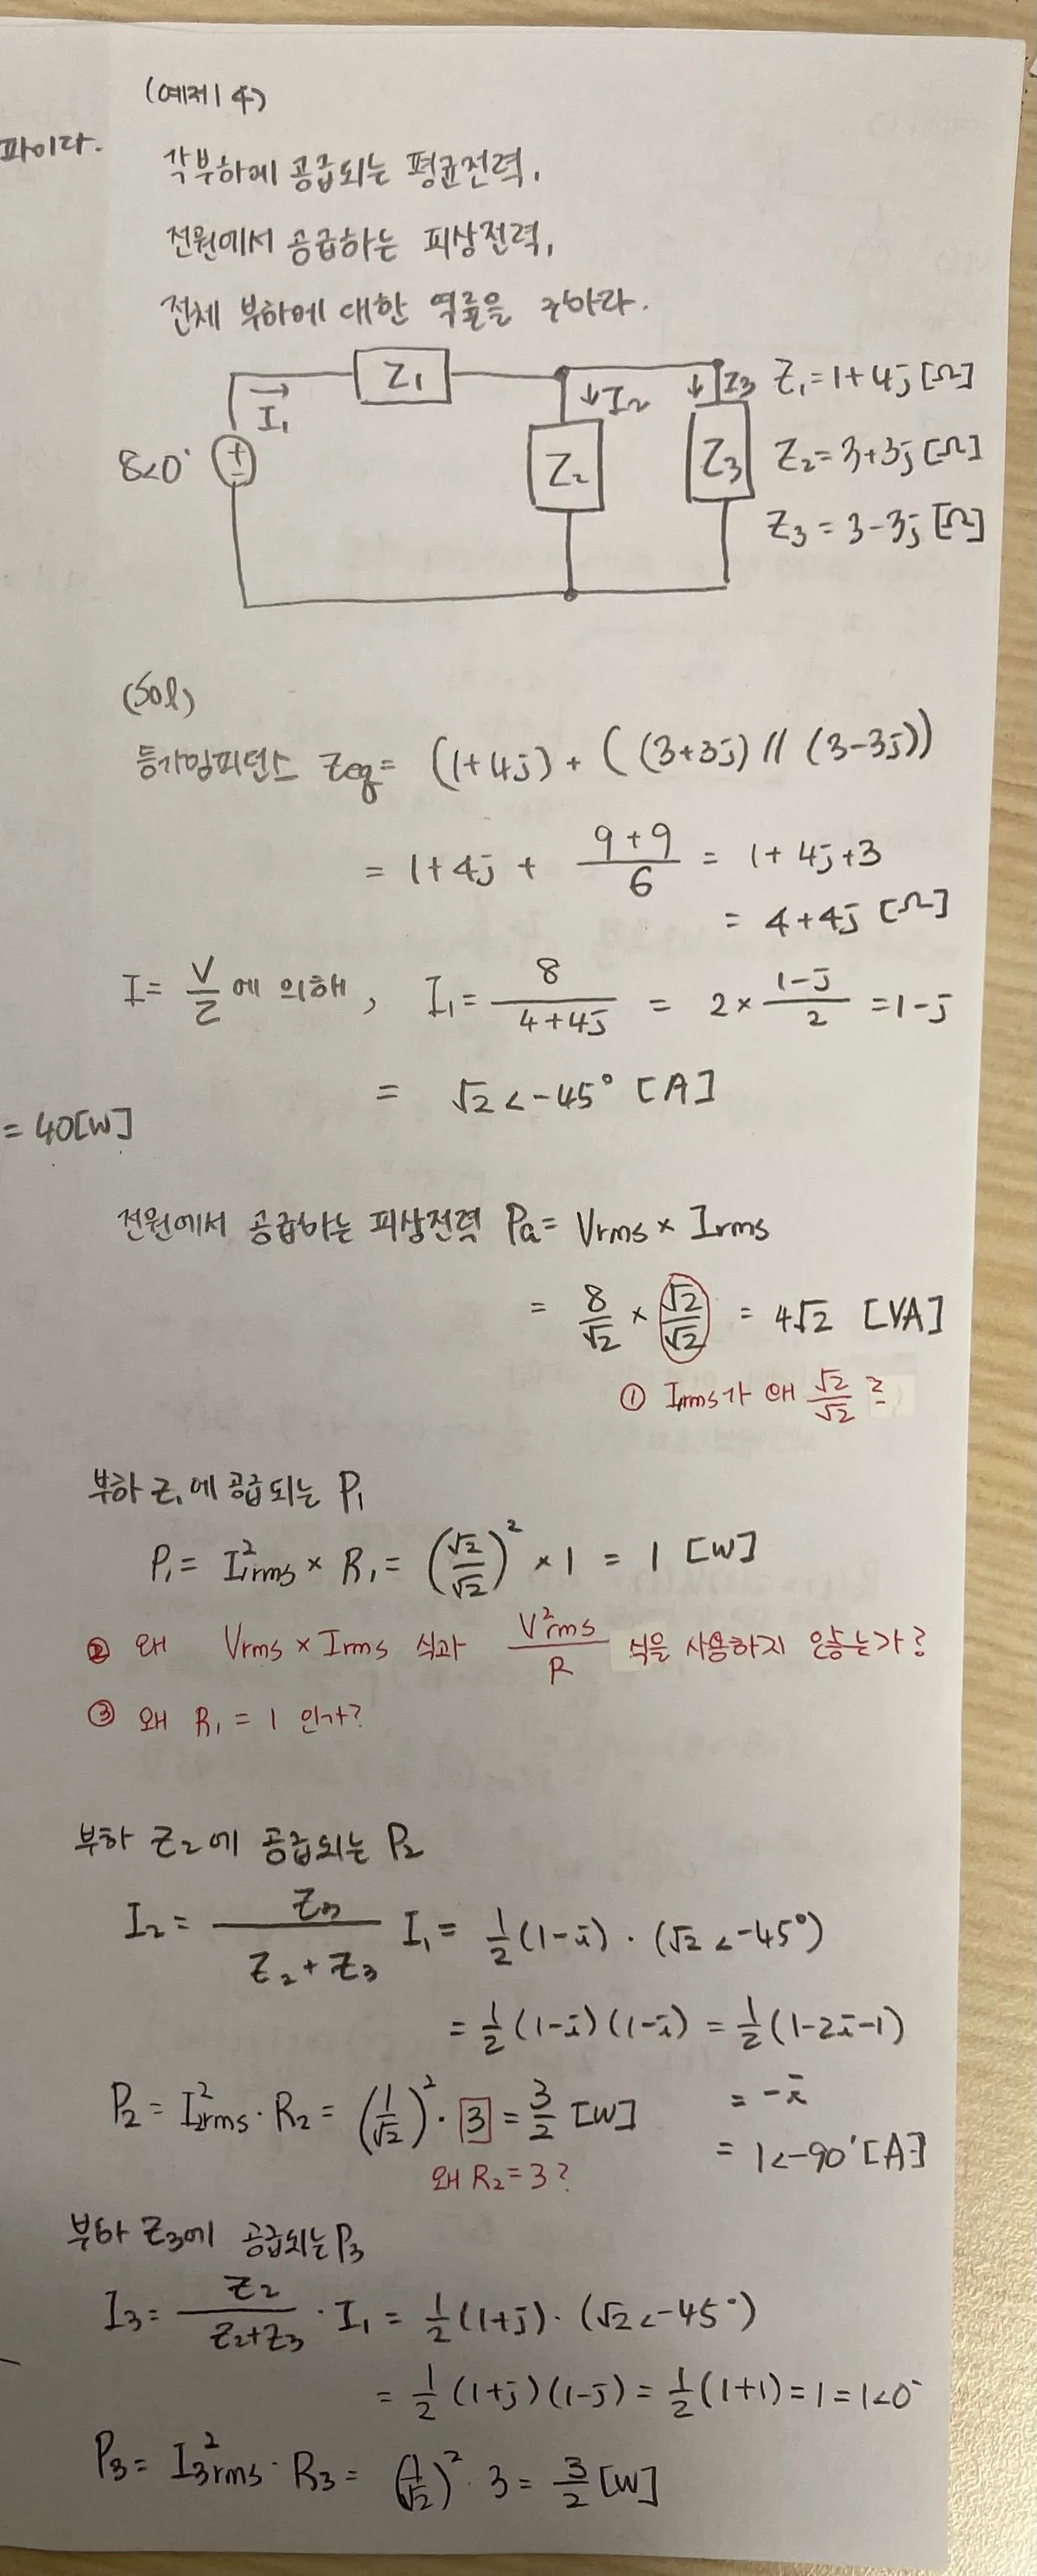 (예제 4)
파이다.
각부하에 공급되는 평균전력,
전원에서 공급하는 피상전력,
전체 부하에 대한 역률을 구하라.
Z₁
I₁
↓I₂
↓I₃
Z₁=1+4j [Ω]
8<0°
Z₂
Z₃
Z₂=3+3j [Ω]
Z₃=3-3j [Ω]
(Sol)
등가임피던스 Zeq= (1+4j)+((3+3j)//(3-3j))
= 1+4j + (9+9)/6 = 1+4j+3
= 4+4j [Ω]
I= V/Z 에 의해, I₁= 8/(4+4j) = 2× (1-j)/2 =1-j
= √2<-45° [A]
= 40[W]
전원에서 공급하는 피상전력 Pa= Vrms× Irms
= 8/√2 × √2/√2 = 4√2 [VA]
① I₁rms가 왜 √2/√2 ?
부하 Z₁에 공급되는 P₁
P₁= I₁²rms× R₁= (√2/√2)² ×1 = 1 [W]
② 왜 Vrms×Irms 식과 V²rms/R 식을 사용하지 않는가?
③ 왜 R₁ = 1 인가?
부하 Z₂에 공급되는 P₂
I₂= Z₃/(Z₂+Z₃) I₁= 1/2(1-i)·(√2<-45°)
= 1/2(1-i)(1-i) = 1/2(1-2i-1)
= -i
P₂= I₂²rms·R₂= (1/√2)²·3 = 3/2 [W]
= 1<-90° [A]
왜 R₂=3?
부하 Z₃에 공급되는P₃
I₃= Z₂/(Z₂+Z₃) ·I₁ = 1/2(1+j)·(√2<-45°)
= 1/2 (1+j)(1-j) = 1/2(1+1)=1=1<0°
P₃= I₃²rms·R₃= (1/√2)²·3= 3/2 [W]